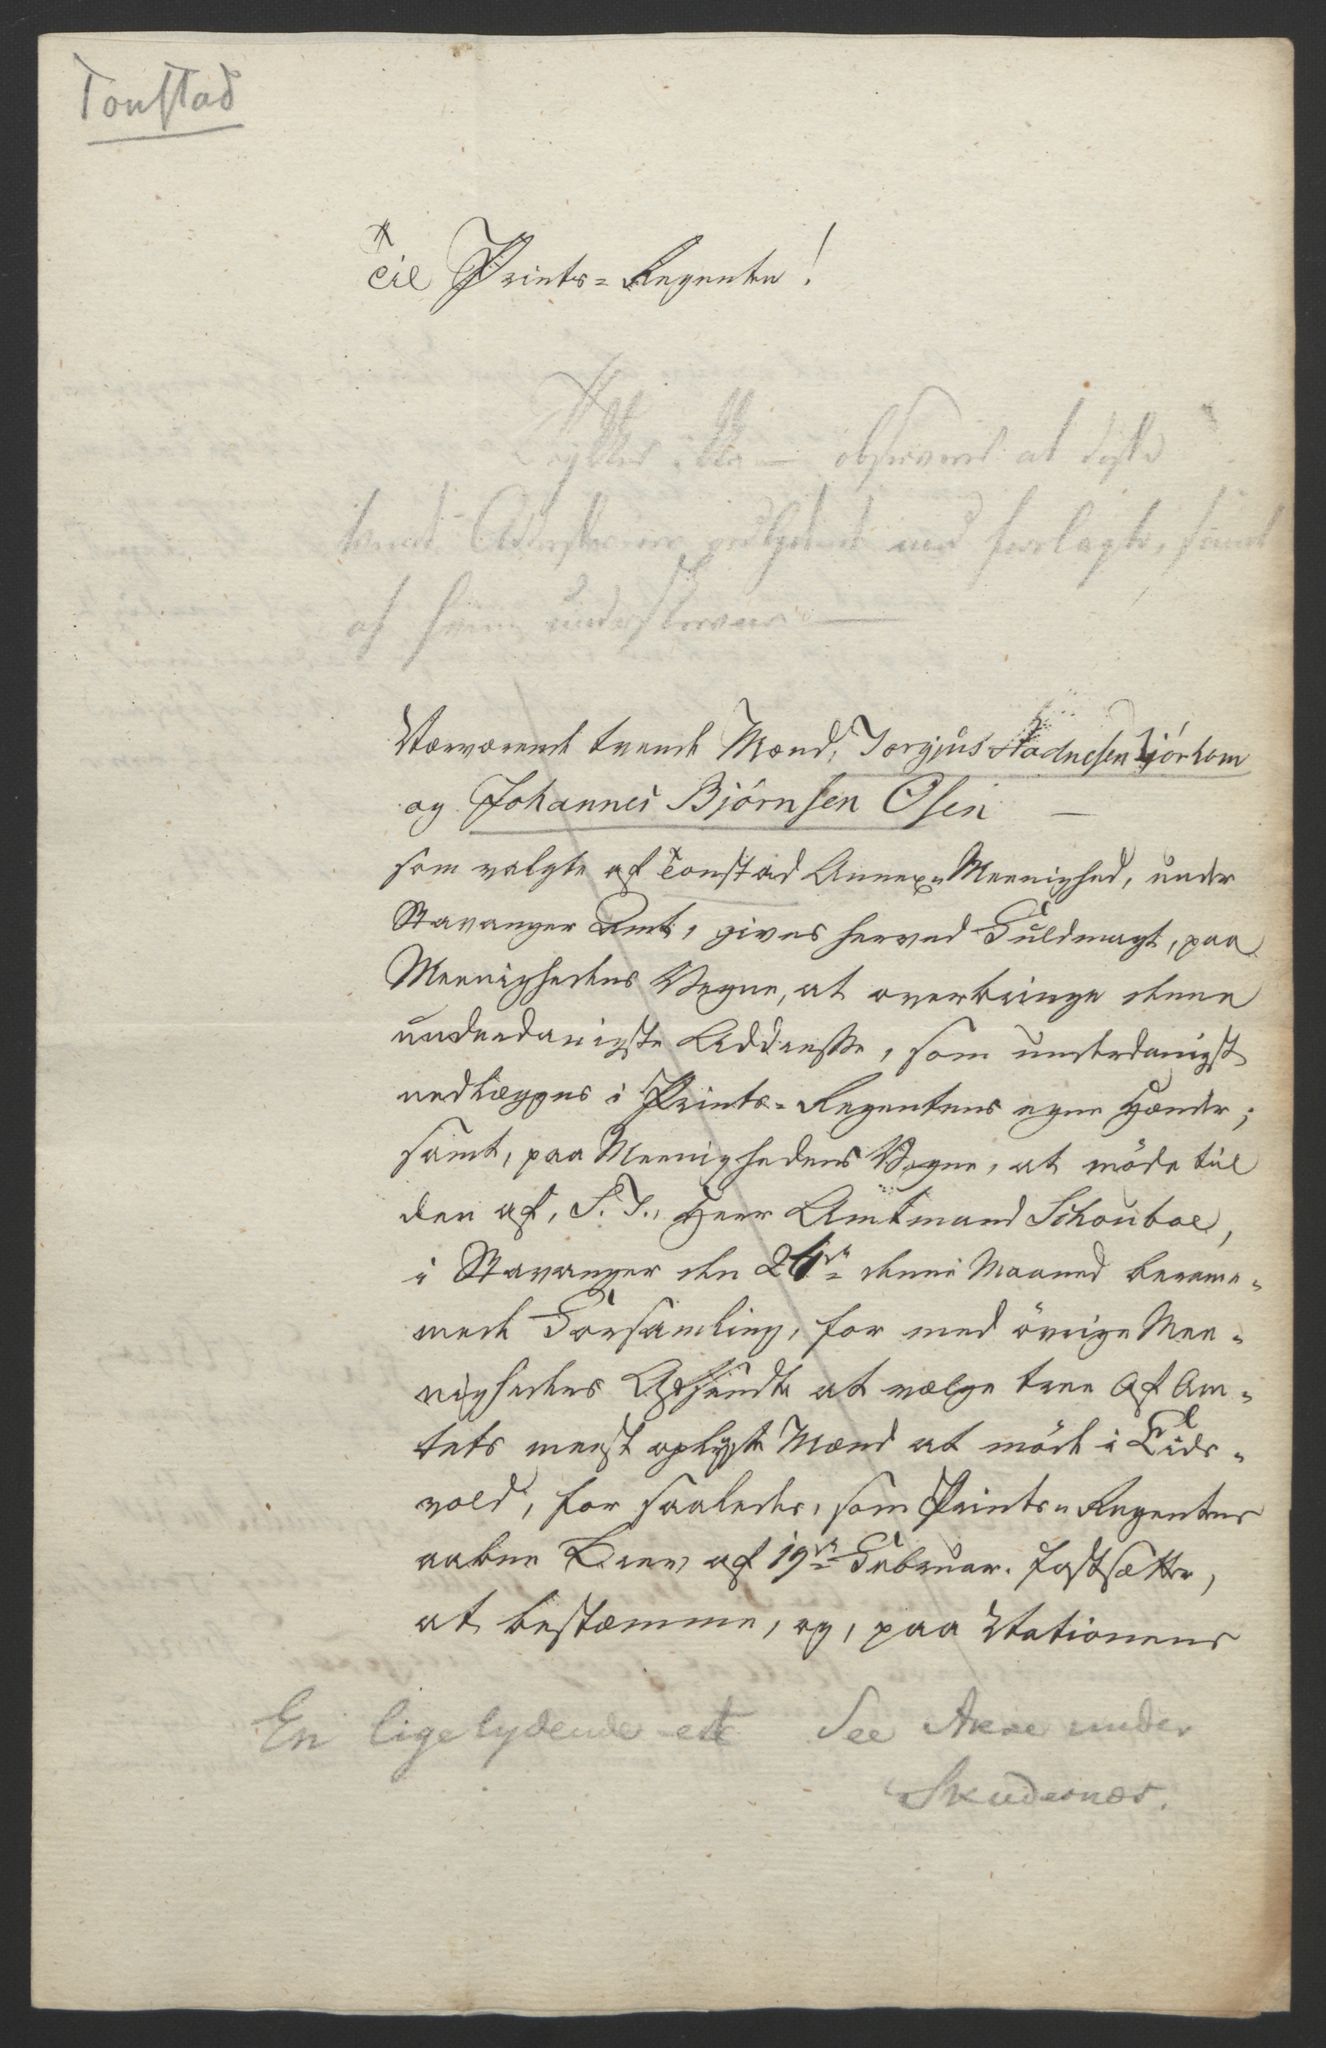 Tonstad
Til Prints-Regenten!
Trykkes ikke — observeret at disse
tvende Adresser ere
af Svein underskreven —
Nærværende tvende Mænd, Torgjus Aadnesen Tjörhom
og Johannes Björnsen Osen —
som valgte af Tonstad Annex-Meenighed, under
Stavanger Amt, gives herved Fuldmagt, paa
Meenighedens Vegne, at overbringe denne
underdanigste Addresse, som underdanigst
nedlægges i Prints-Regentens egne Hænder;
samt, paa Meenighedens Vegne, at möde til
den af, S. T., Herr Amtmand Schouboe,
i Stavanger den 26de denne Maaned beram-
mede Forsamling, for med övrige Mee-
nigheders Afsendte at vælge tree af Am-
tets meest oplyste Mænd at möde i Eids-
vold, for saaledes, som Prints-Regentens
aabne Brev af 19de Februar. fastsætter,
at bestemme, og, paa Nationens
En ligelydende see Arne under
Skudesnæs.